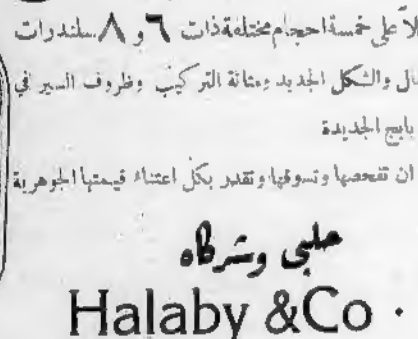 لاً على خمسة احجام مختلفة ذات ٦ و ٨ سلندرات
ال والشكل الجديد ومتانة التركيب وظروف السير في
بايج الجديدة
ان تفحصها وتسوقها وتقدير بكل اعتناء قيمتها الجوهرية
حلبي وشركاه
Halaby &Co ·